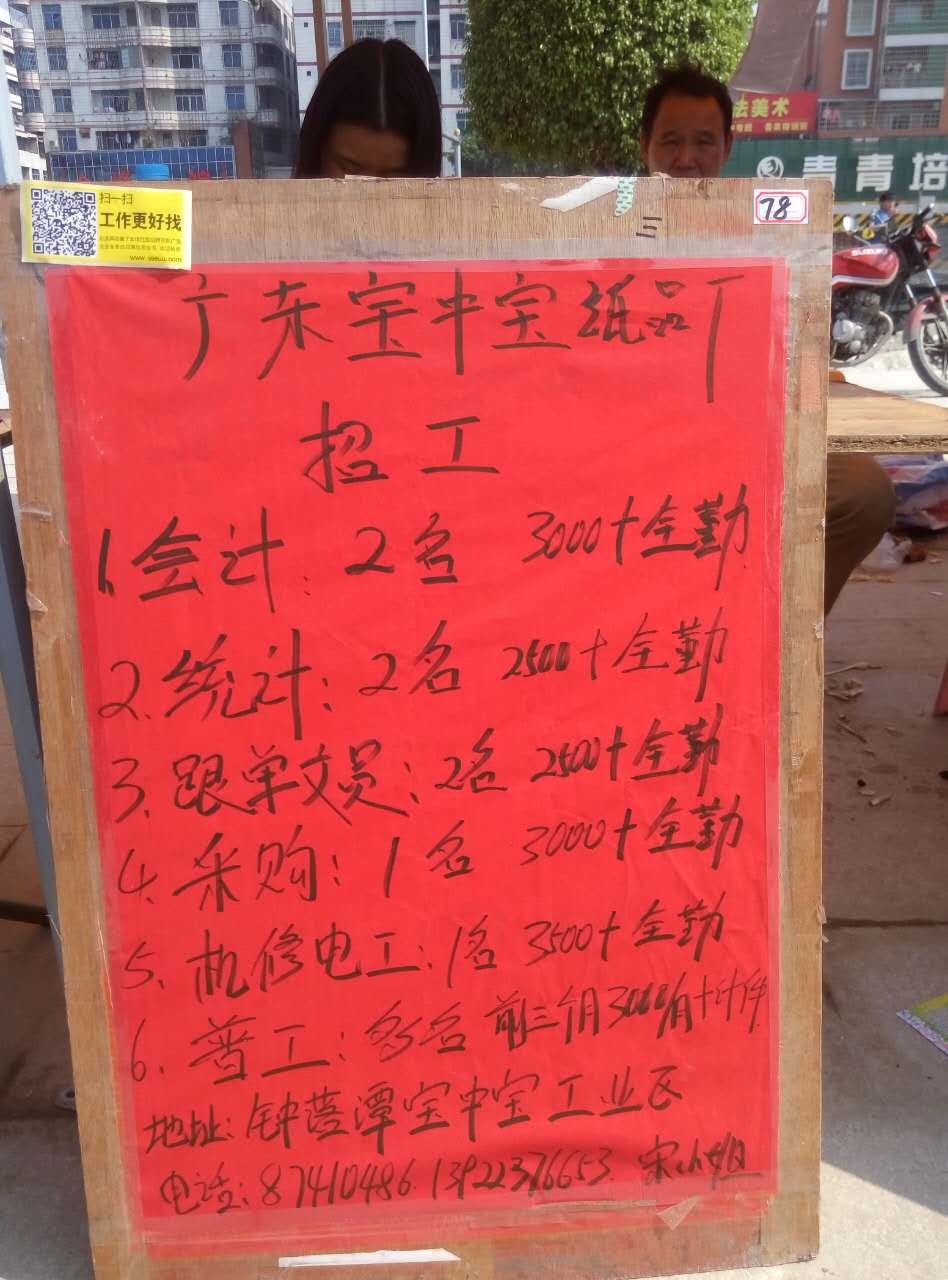 法美术
青青培
扫一扫
工作更好找
78
三
广东宝中宝纸品厂
招工
1.会计:2名 3000+全勤
2.统计:2名 2500+全勤
3.跟单文员:2名 2500+全勤
4.采购:1名 3000+全勤
5.机修电工:1名 3500+全勤
6.普工:多名 前三个月3000/月+计件
地址:钟落潭宝中宝工业区
电话:87410486 13922376653 宋小姐